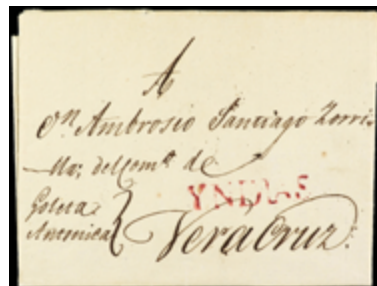 A
Dn Ambrosio Santiago Zorri-
lla; del comº de
YNDIAS
Goleta
Veracruz.